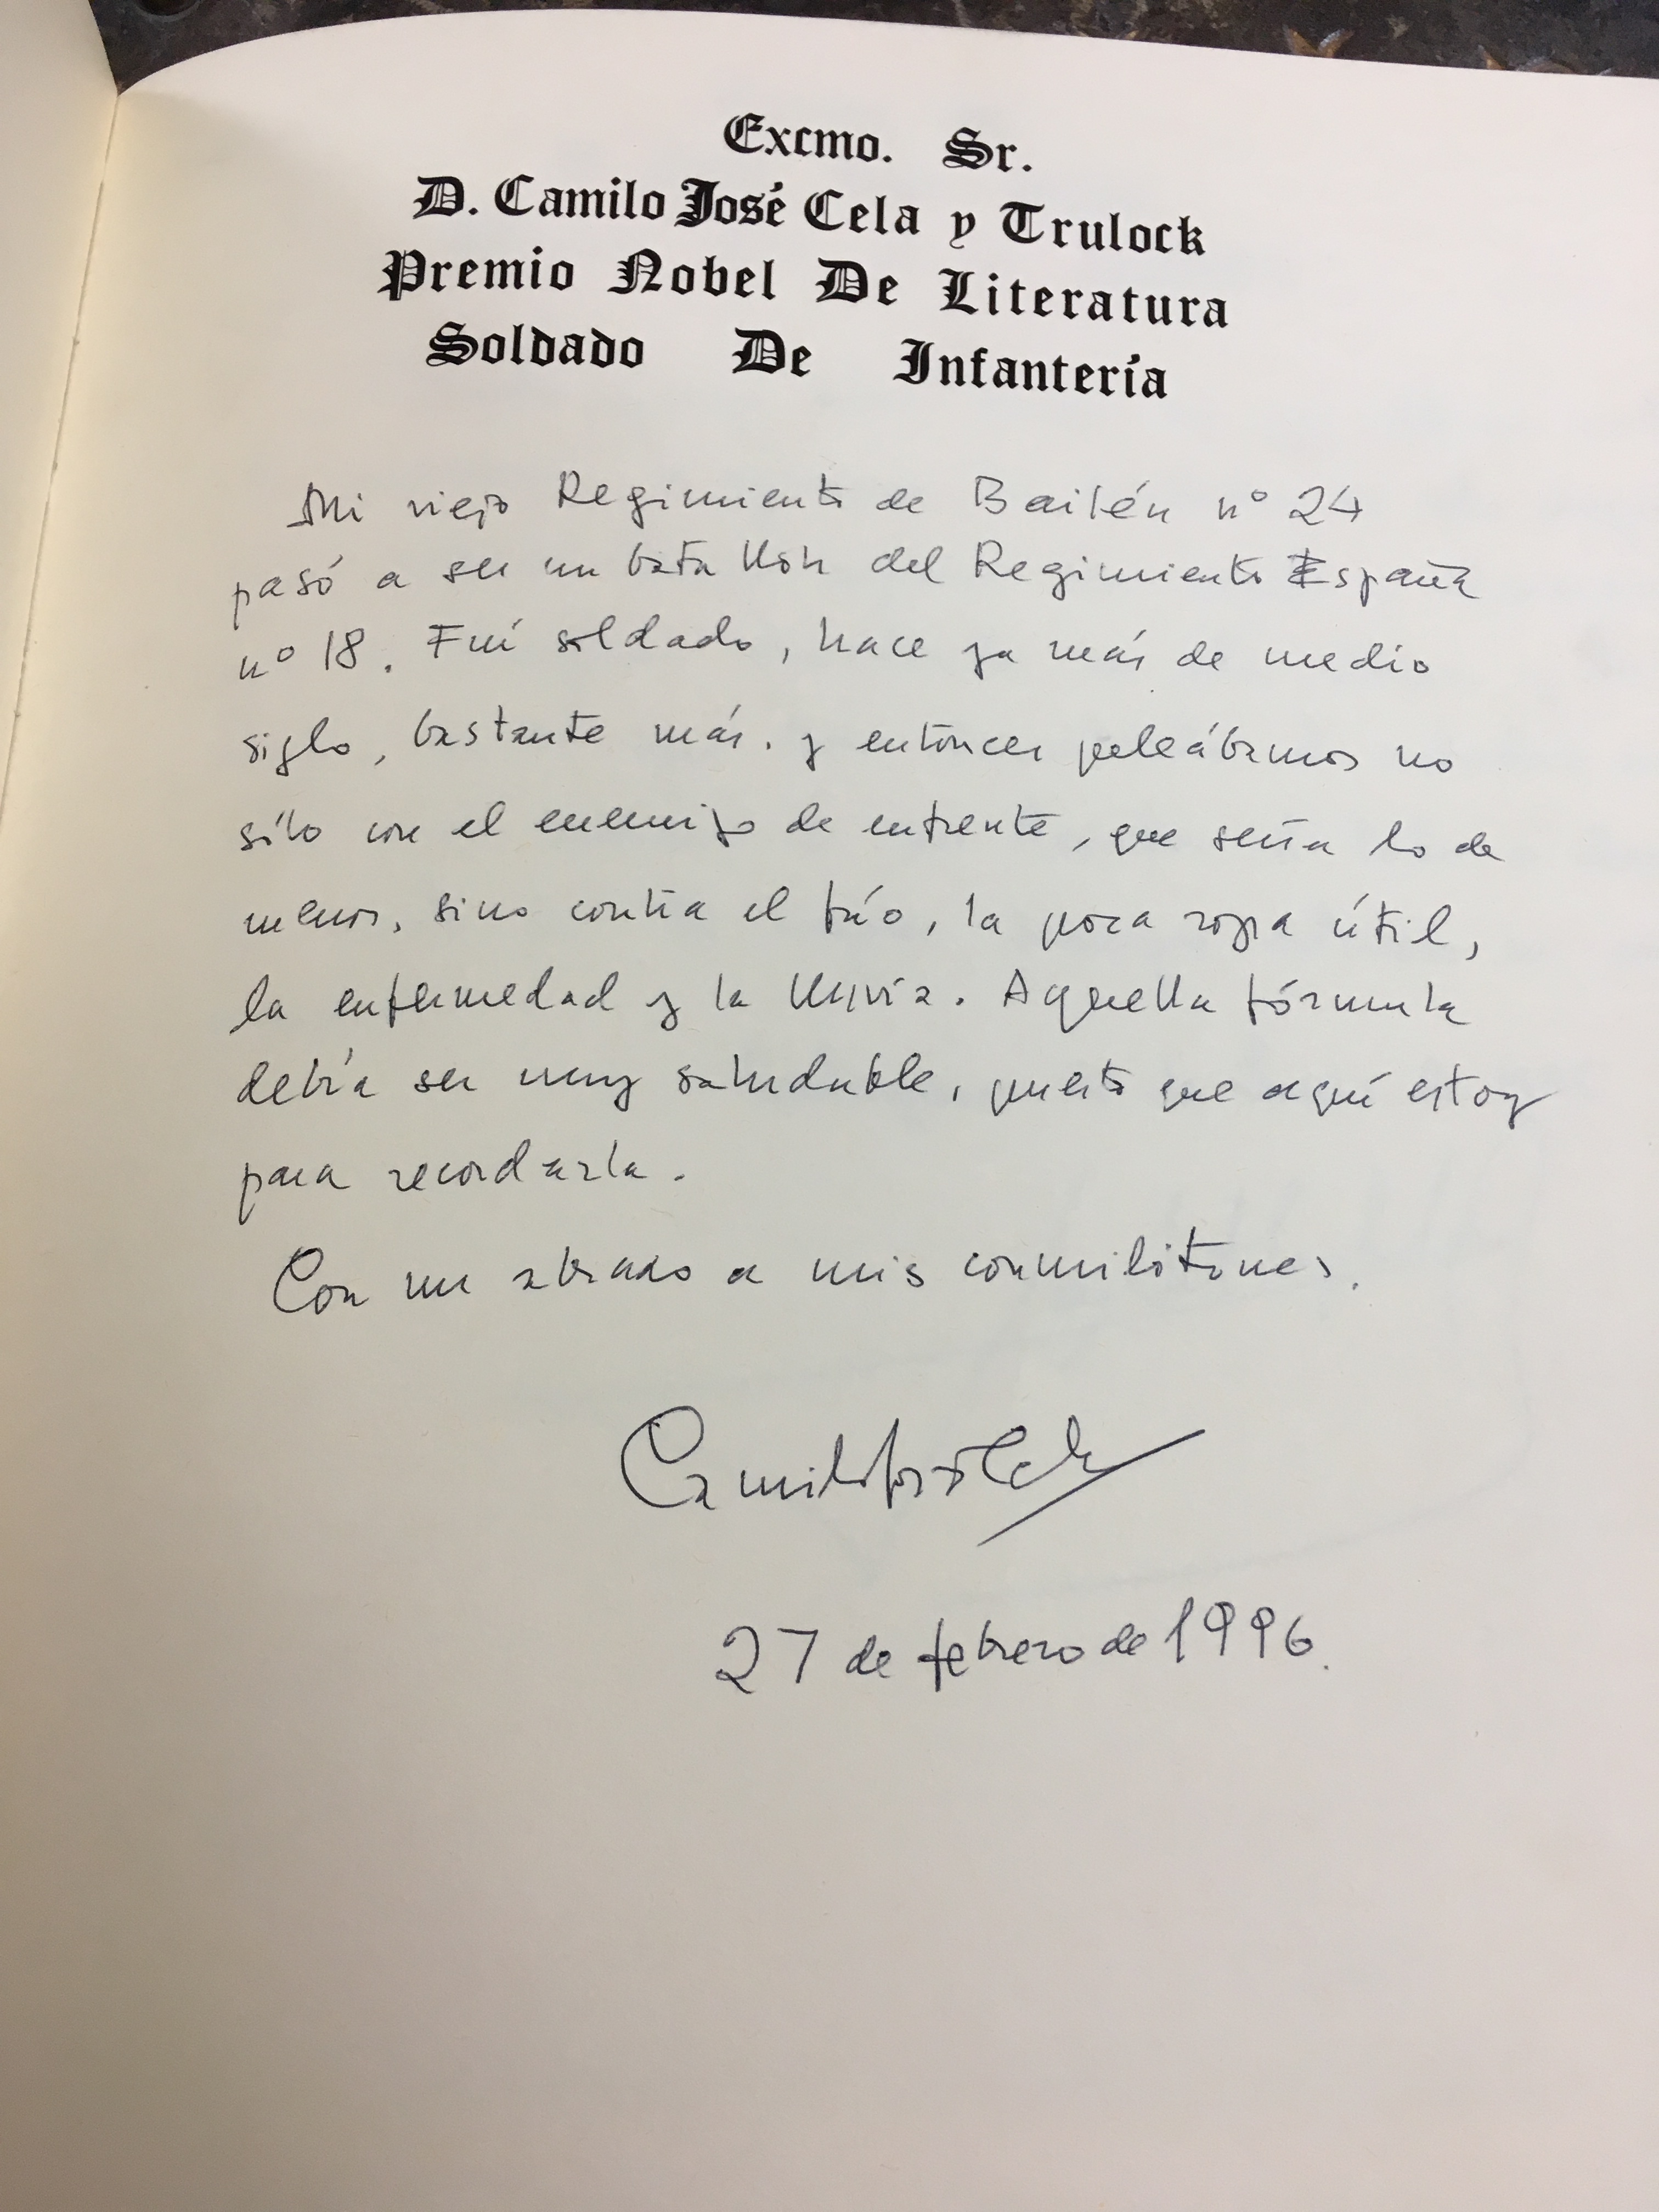 Excmo. Sr.
D. Camilo José Cela y Trulock
Premio Nobel De Literatura
Soldado De Infantería
Mi viejo Regimiento de Bailén nº 24
pasó a ser un batallón del Regimiento España
nº 18. Fuí soldado, hace ya más de medio
siglo, bastante más. y entonces peleábamos no
sólo con el enemigo de enfrente, que sería lo de
menos, sino contra el frío, la poca ropa útil,
la enfermedad y la lluvia. Aquella fórmula
debía ser muy saludable, puesto que aquí estoy
para recordarla.
Con un abrazo a mis conmilitones.
Camilo José Cela
27 de febrero de 1996.